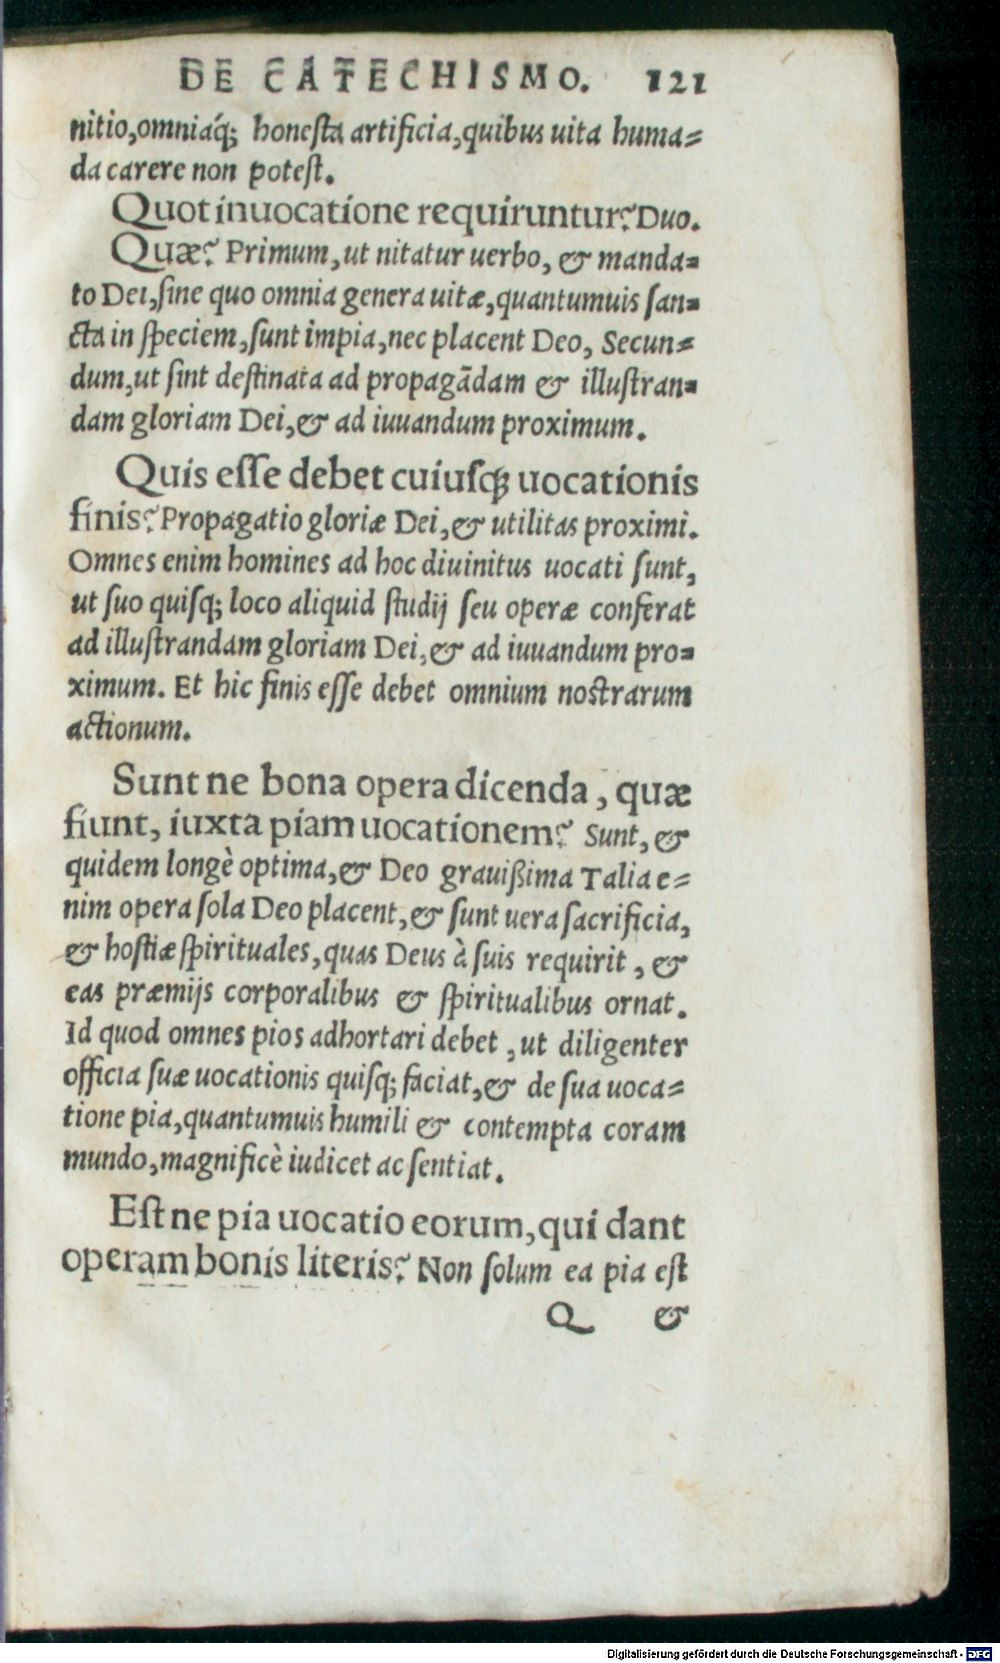 DE CATECHISMO. 121
nitio,omniaq́; honesta artificia,quibus uita huma=
da carere non potest.
Quot in uocatione requiruntur? Duo.
Quæ? Primum,ut nitatur uerbo, & manda=
to Dei,sine quo omnia genera uitæ,quantumuis san=
cta in speciem,sunt impia,nec placent Deo, Secun=
dum,ut sint destinata ad propagãdam & illustran=
dam gloriam Dei,& ad iuuandum proximum.
Quis esse debet cuiusq; uocationis
finis? Propagatio gloriæ Dei,& utilitas proximi.
Omnes enim homines ad hoc diuinitus uocati sunt,
ut suo quisq; loco aliquid studij seu operæ conferat
ad illustrandam gloriam Dei,& ad iuuandum pro=
ximum. Et hic finis esse debet omnium nostrarum
actionum.
Sunt ne bona opera dicenda, quæ
fiunt, iuxta piam uocationem? Sunt, &
quidem longè optima,& Deo grauißima Talia e=
nim opera sola Deo placent,& sunt uera sacrificia,
& hostiæ spirituales,quas Deus à suis requirit, &
eas præmijs corporalibus & spiritualibus ornat.
Id quod omnes pios adhortari debet, ut diligenter
officia suæ uocationis quisq; faciat,& de sua uoca=
tione pia,quantumuis humili & contempta coram
mundo,magnificè iudicet ac sentiat.
Est ne pia uocatio eorum,qui dant
operam bonis literis? Non solum ea pia est
Q &
Digitalisierung gefördert durch die Deutsche Forschungsgemeinschaft - DFG